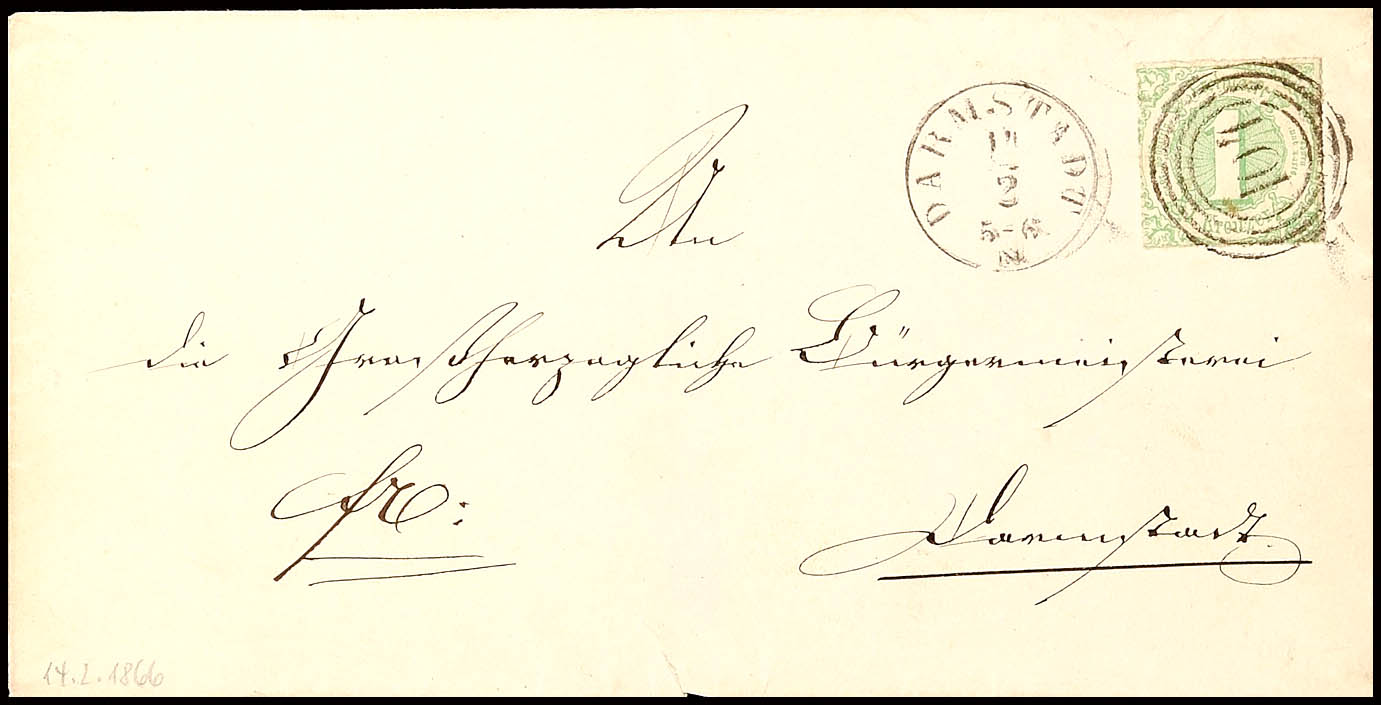 DARMSTADT
5-6
N
101
1
Kreuzer
An
die Großherzogliche Bürgermeisterei
fr:
Darmstadt.
14.2.1866